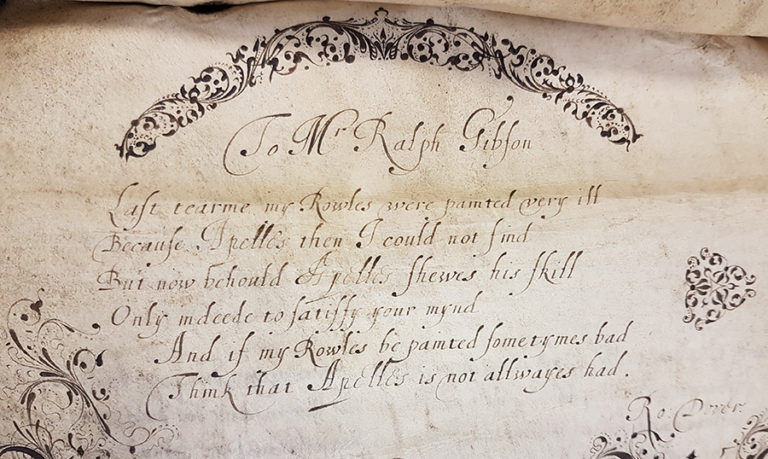 To Mr Ralph Gibson
Last tearme my Rowles were painted very ill
Because Apelles then I could not find
But now behould Apelles shewes his skill
Only indeede to satisfy your mynd
And if my Rowles be painted sometymes bad
Think that Apelles is not allwayes had.
Ro.